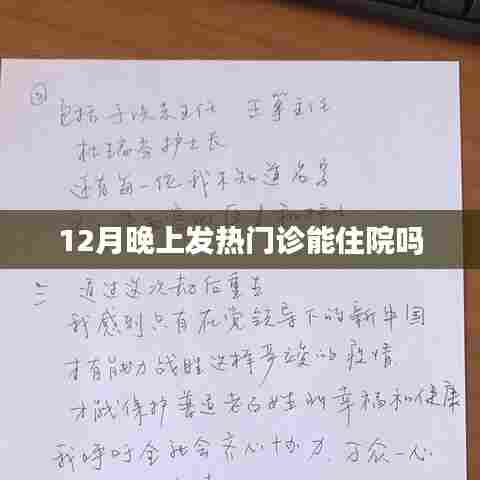 包括于洪涛主任 王箏主任
杜瑞芬护士长
还有每一位我不知道名字
12月晚上发热门诊能住院吗
三 通过这次劫后重生
我感到只有在党领导下的新中国
才有能力战胜这样严峻的疫情
才能保护善良老百姓的幸福和健康
我呼吁全社会齐心协力 万众一心